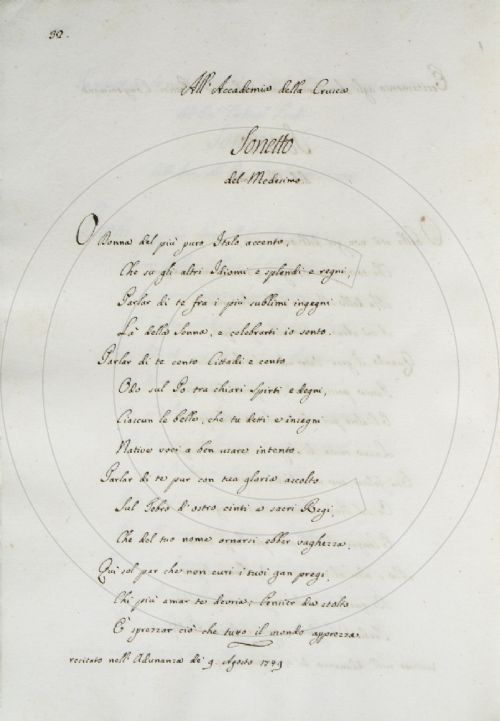 32.
All' Accademia della Crusca
Sonetto
del Medesimo
O Donna del più puro Italo accento,
Che su gli altri Idiomi e splendi e regni,
Parlar di te fra i più sublimi ingegni
Là della Senna, e celebrarti io sento.
Parlar di te cento Cittadi e cento
Odo sul Po tra chiari spirti e degni,
Ciascun le belle, che tu detti e insegni
Native voci a ben usare intento.
Parlar di te pur con tua gloria ascolto
Sul Tebro d'ostro cinti e sacri Regi,
Che del tuo nome ornarsi ebber vaghezza.
Qui sol par che non curi i tuoi gan pregi,
Chi più amar te devria; pensier da stolto
È sprezzar ciò che tutto il mondo apprezza.
recitato nell' Adunanza de' 9. Agosto 1749